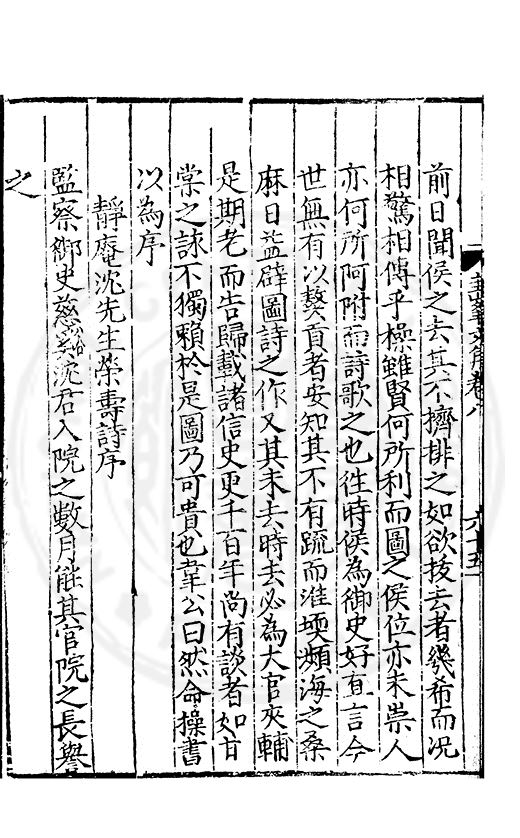 前日聞侯之去其不擠排之如欲拔去者幾希而况
相驚相傳乎操雖賢何所利而圖之侯位亦未崇人
亦何所阿附而詩歌之也徃時侯為御史好直言今
世無有以獒貢者安知其不有疏而淮堧頻海之桑
麻日益辟圖詩之作又其未去時去必為大官夾輔
是期老而告歸載諸信史更千百年尚有談者如甘
棠之詠不獨賴於是圖乃可貴也韋公曰然命操書
以為序
靜庵沈先生榮壽詩序
監察御史慈沈君入院之數月能其官院之長譽
之